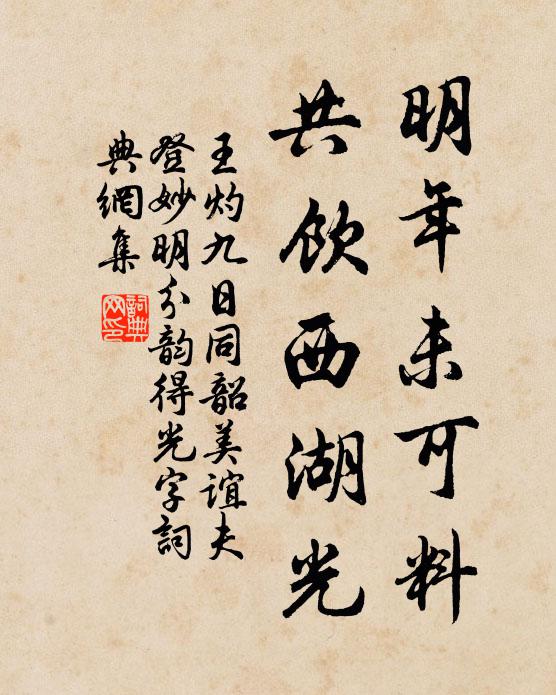 明年未可料
共饮西湖光
王灼九日同韶美谊夫
登妙明分韵得光字詞
典網集
詞典网印